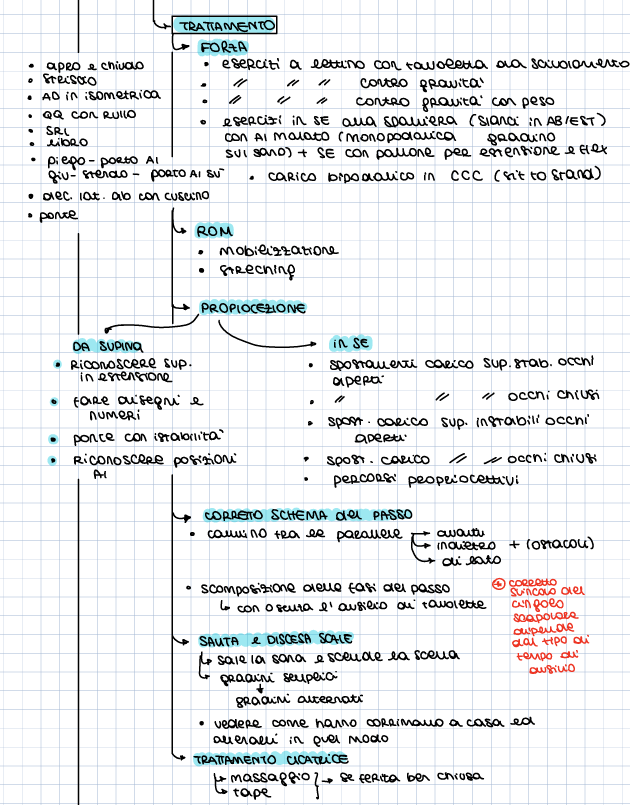 TRATTAMENTO
FORZA
• apro e chiudo
• striscio
• AD in isometrica
• QQ con rullo
• SRL
• libro
• piego - porto AI
giù - stendo - porto AI su
• dec. lat. ab con cuscino
• ponte
• esercizi a lettino con tavoletta da scivolamento
• // // // contro gravità
• // // // contro gravità con peso
• esercizi in SE alla spalliera (slanci in AB/EST)
con AI malato (monopodalica gradino
sul sano) + SE con pallone per estensione e flex
• carico bipodalico in CCC (sit to stand)
ROM
• mobilizzazione
• streching
PROPIOCEZIONE
DA SUPINA
• RICONOSCERE SUP.
in estensione
• fare disegni e
numeri
• ponte con istabilità
• RICONOSCERE POSIZIONI
AI
in SE
• spostamenti carico sup. stab. occhi
aperti
• // // // occhi chiusi
• spost. carico sup. instabili occhi
aperti
• spost. carico // // occhi chiusi
• percorsi propriocettivi
CORRETO SCHEMA del PASSO
• cammino tra le parallele → avanti
→ indietro + (ostacoli)
→ di lato
• scomposizione delle fasi del passo
↳ con o senza l'ausilio di tavolette
+ corretto
svincolo del
cingolo
scapolare
dipende
dal tipo di
tempo di
ausilio
SALITA e DISCESA SCALE
↳ sale la sana e scende la scema
↳ gradini semplici
↓
gradini alternati
• vedere come hanno corrimano a casa ed
allenarli in quel modo
TRATTAMENTO CICATRICE
↳ massaggio } → se ferita ben chiusa
↳ tape